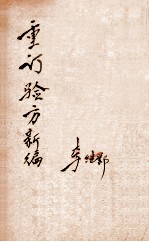 重订验方新编